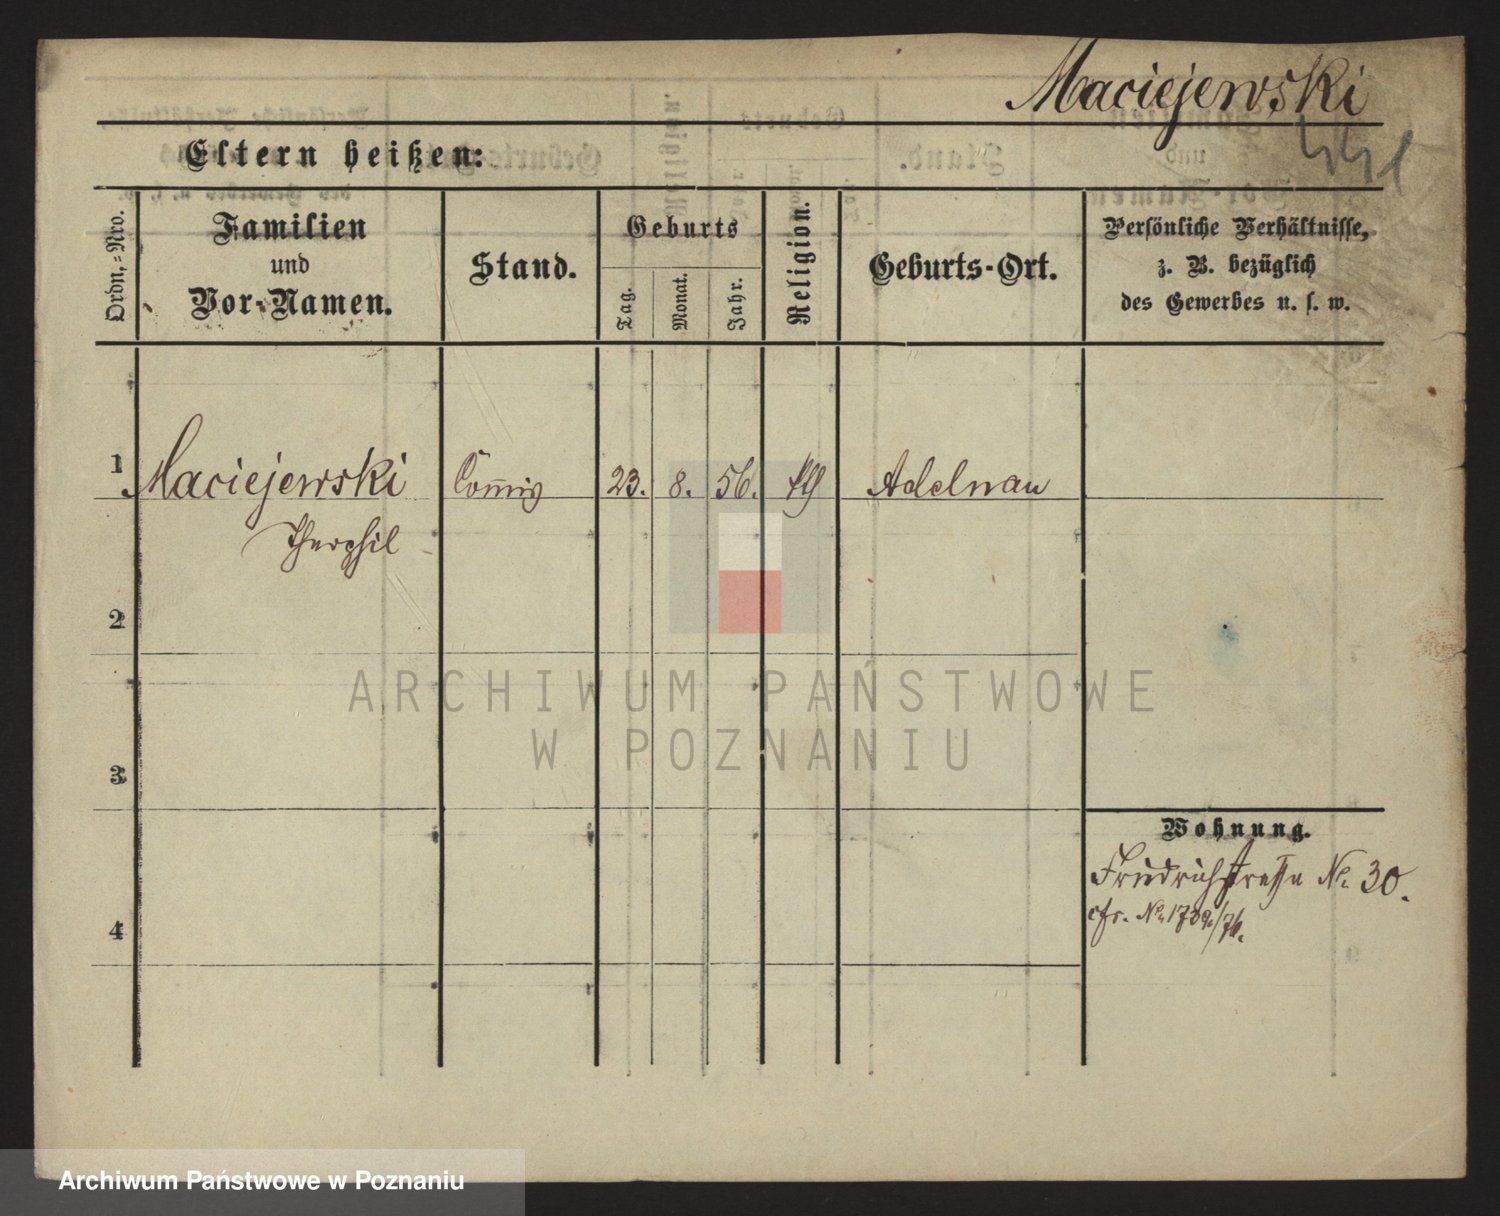 Maciejewski
Eltern heißen:
Ordn.-Nro.
Familien
und
Vor-Namen.
Stand.
Geburts
Tag.
Monat.
Jahr.
Religion.
Geburts-Ort.
Persönliche Verhältnisse,
z. B. bezüglich
des Gewerbes u. s. w.
1 Maciejewski Com̄is 23. 8. 56. Adelnau
Theophil
2
ARCHIWUM PAŃSTWOWE
W POZNANIU
3
Wohnung.
Friedrichstraße No. 30.
cfr. No. 1739/76.
4
Archiwum Państwowe w Poznaniu